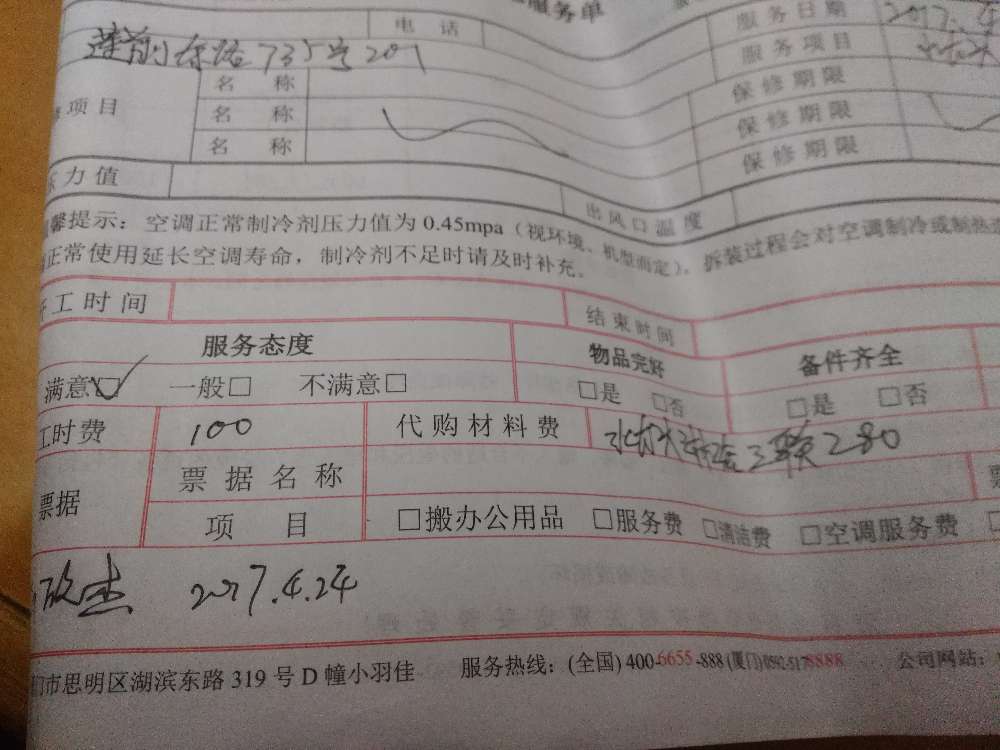 服务单
电话 服务日期 2017.4
莲前东路735号201 服务项目
项目 名称 保修期限
名称 保修期限
名称 保修期限
压力值 出风口温度
馨提示：空调正常制冷剂压力值为 0.45mpa（视环境、机型而定），拆装过程会对空调制冷或制热
正常使用延长空调寿命，制冷剂不足时请及时补充。
开工时间 结束时间
服务态度 物品完好 备件齐全
满意☑ 一般□ 不满意□ □是 □否 □是 □否
工时费 100 代购材料费 三联 280
票据 票据名称
项目 □搬办公用品 □服务费 □清洁费 □空调服务费
杰 2017.4.24
门市思明区湖滨东路 319 号 D 幢小羽佳 服务热线：(全国) 400-6655-888 (厦门) 0592-5178888 公司网站：